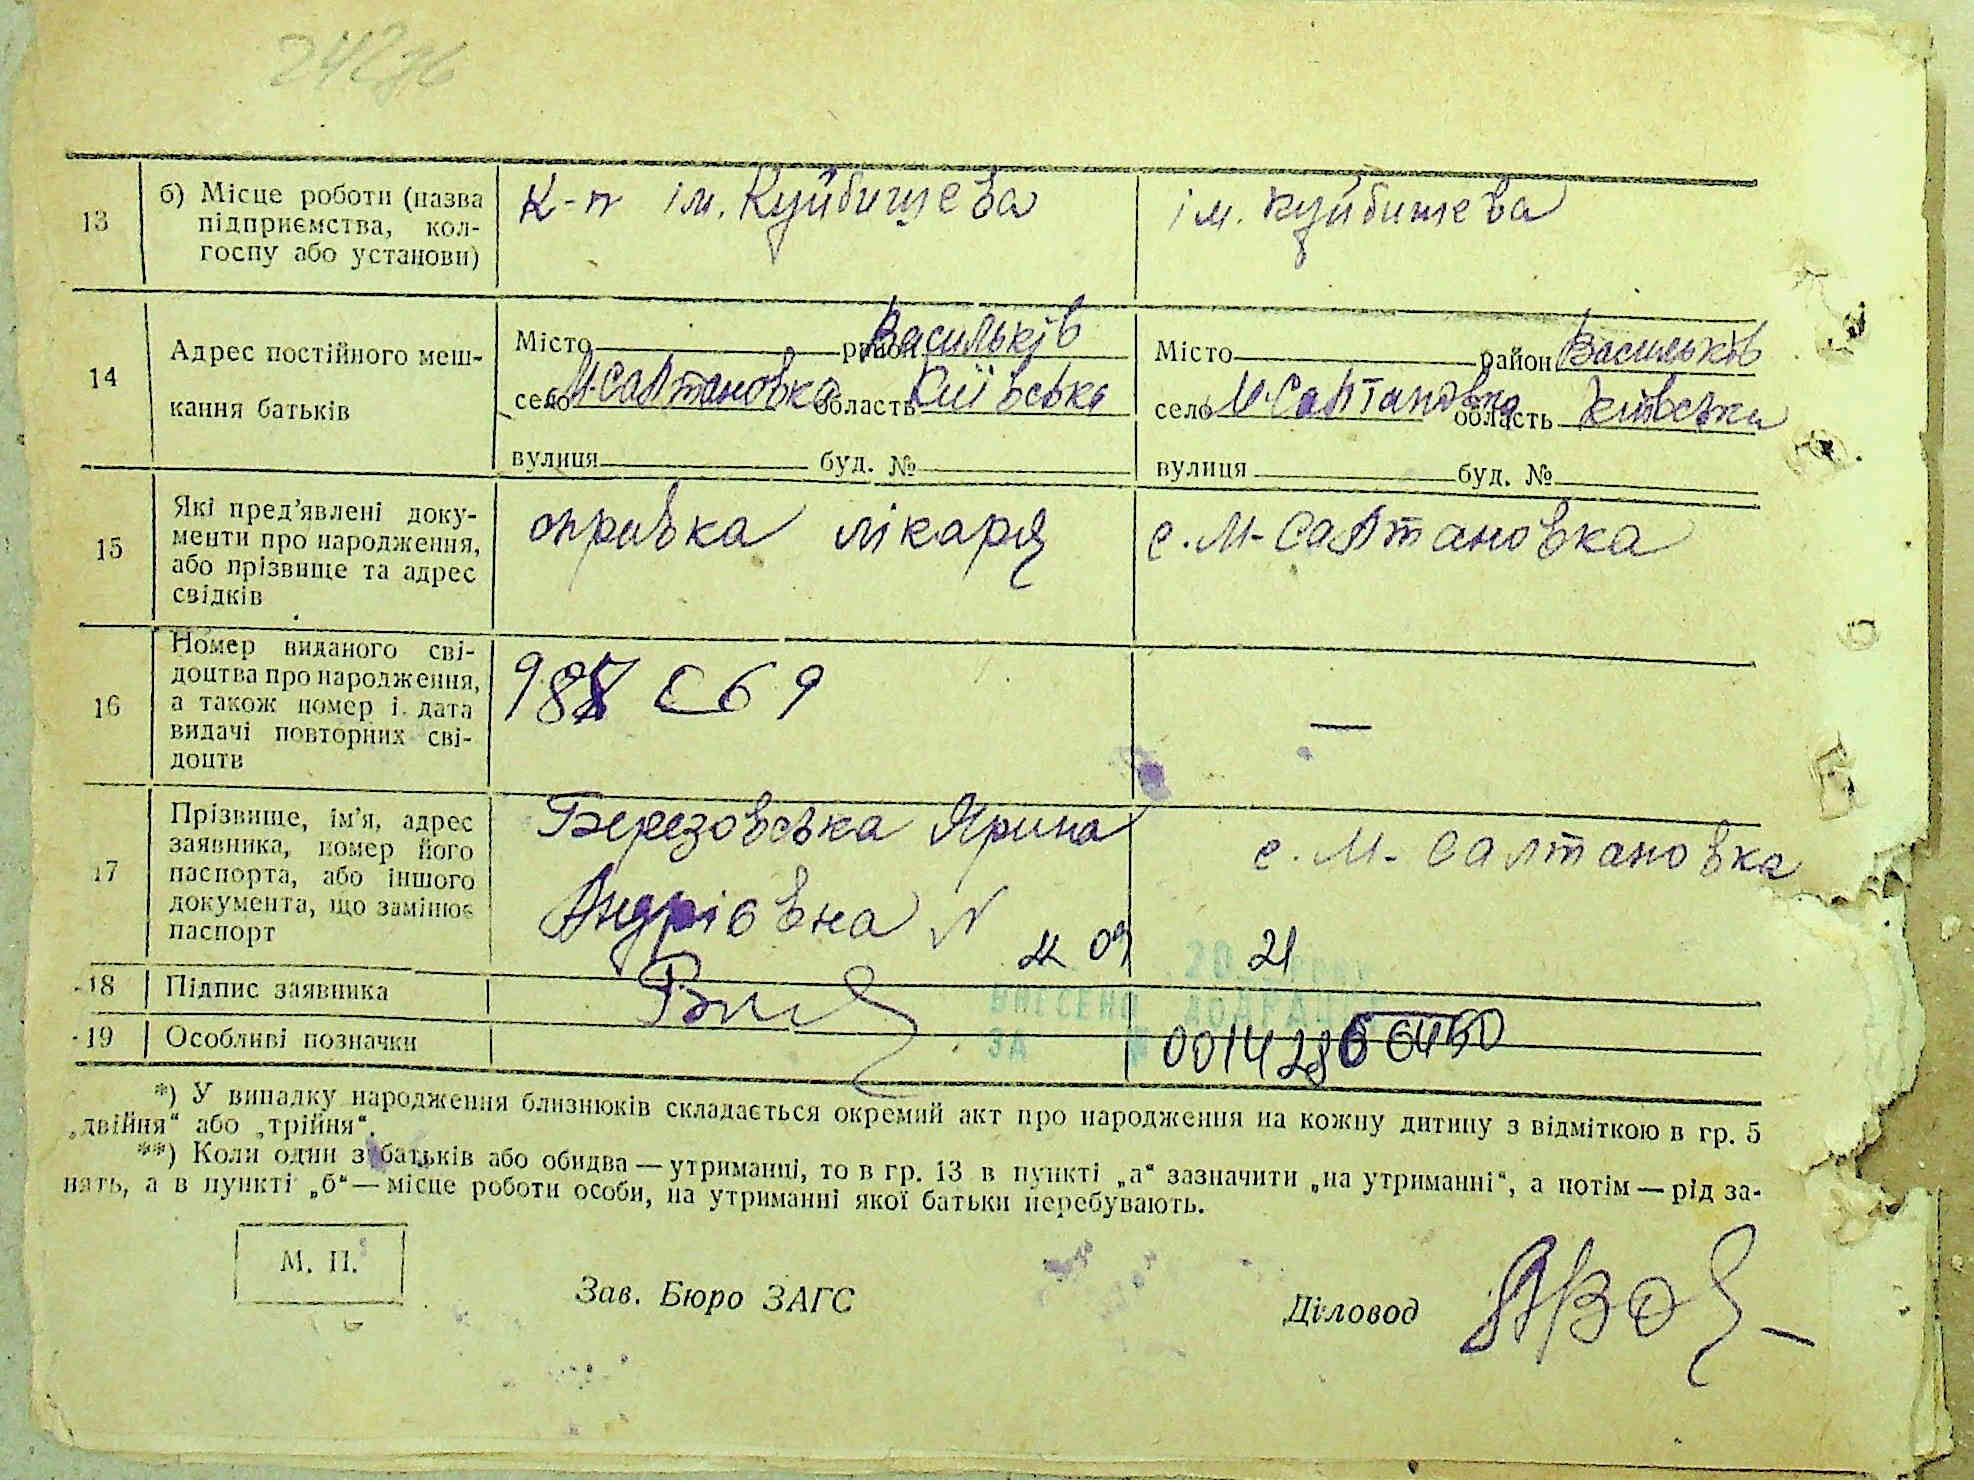 13
б) Місце роботи (назва
підприємства, кол-
госпу або установи)
к-п ім. Куйбишева
ім. Куйбишева
14
Адрес постійного меш-
кання батьків
Місто район Васильків
село М-Салтановка область Київська
вулиця буд. №
Місто район Васильків
село М-Салтановка область Київська
вулиця буд. №
15
Які пред'явлені доку-
менти про народження,
або прізвище та адрес
свідків
справка лікаря
с. М-Салтановка
16
Номер виданого сві-
доцтва про народження,
а також номер і дата
видачі повторних сві-
доцтв
—
17
Прізвище, ім'я, адрес
заявника, номер його
паспорта, або іншого
документа, що замінює
паспорт
Березовська Ярина
Андріовна №
с. М- Салтановка
09 21
18
Підпис заявника
19
Особливі позначки
ВНЕСЕНО ДО ДРАЦС
ЗА №
*) У випадку народження близнюків складається окремий акт про народження на кожну дитину з відміткою в гр. 5
„двійня“ або „трійня“.
**) Коли один з батьків або обидва — утриманці, то в гр. 13 в пункті „а“ зазначити „на утриманні“, а потім — рід за-
нять, а в пункті „б“ — місце роботи особи, на утриманні якої батьки перебувають.
М. П.
Зав. Бюро ЗАГС
Діловод